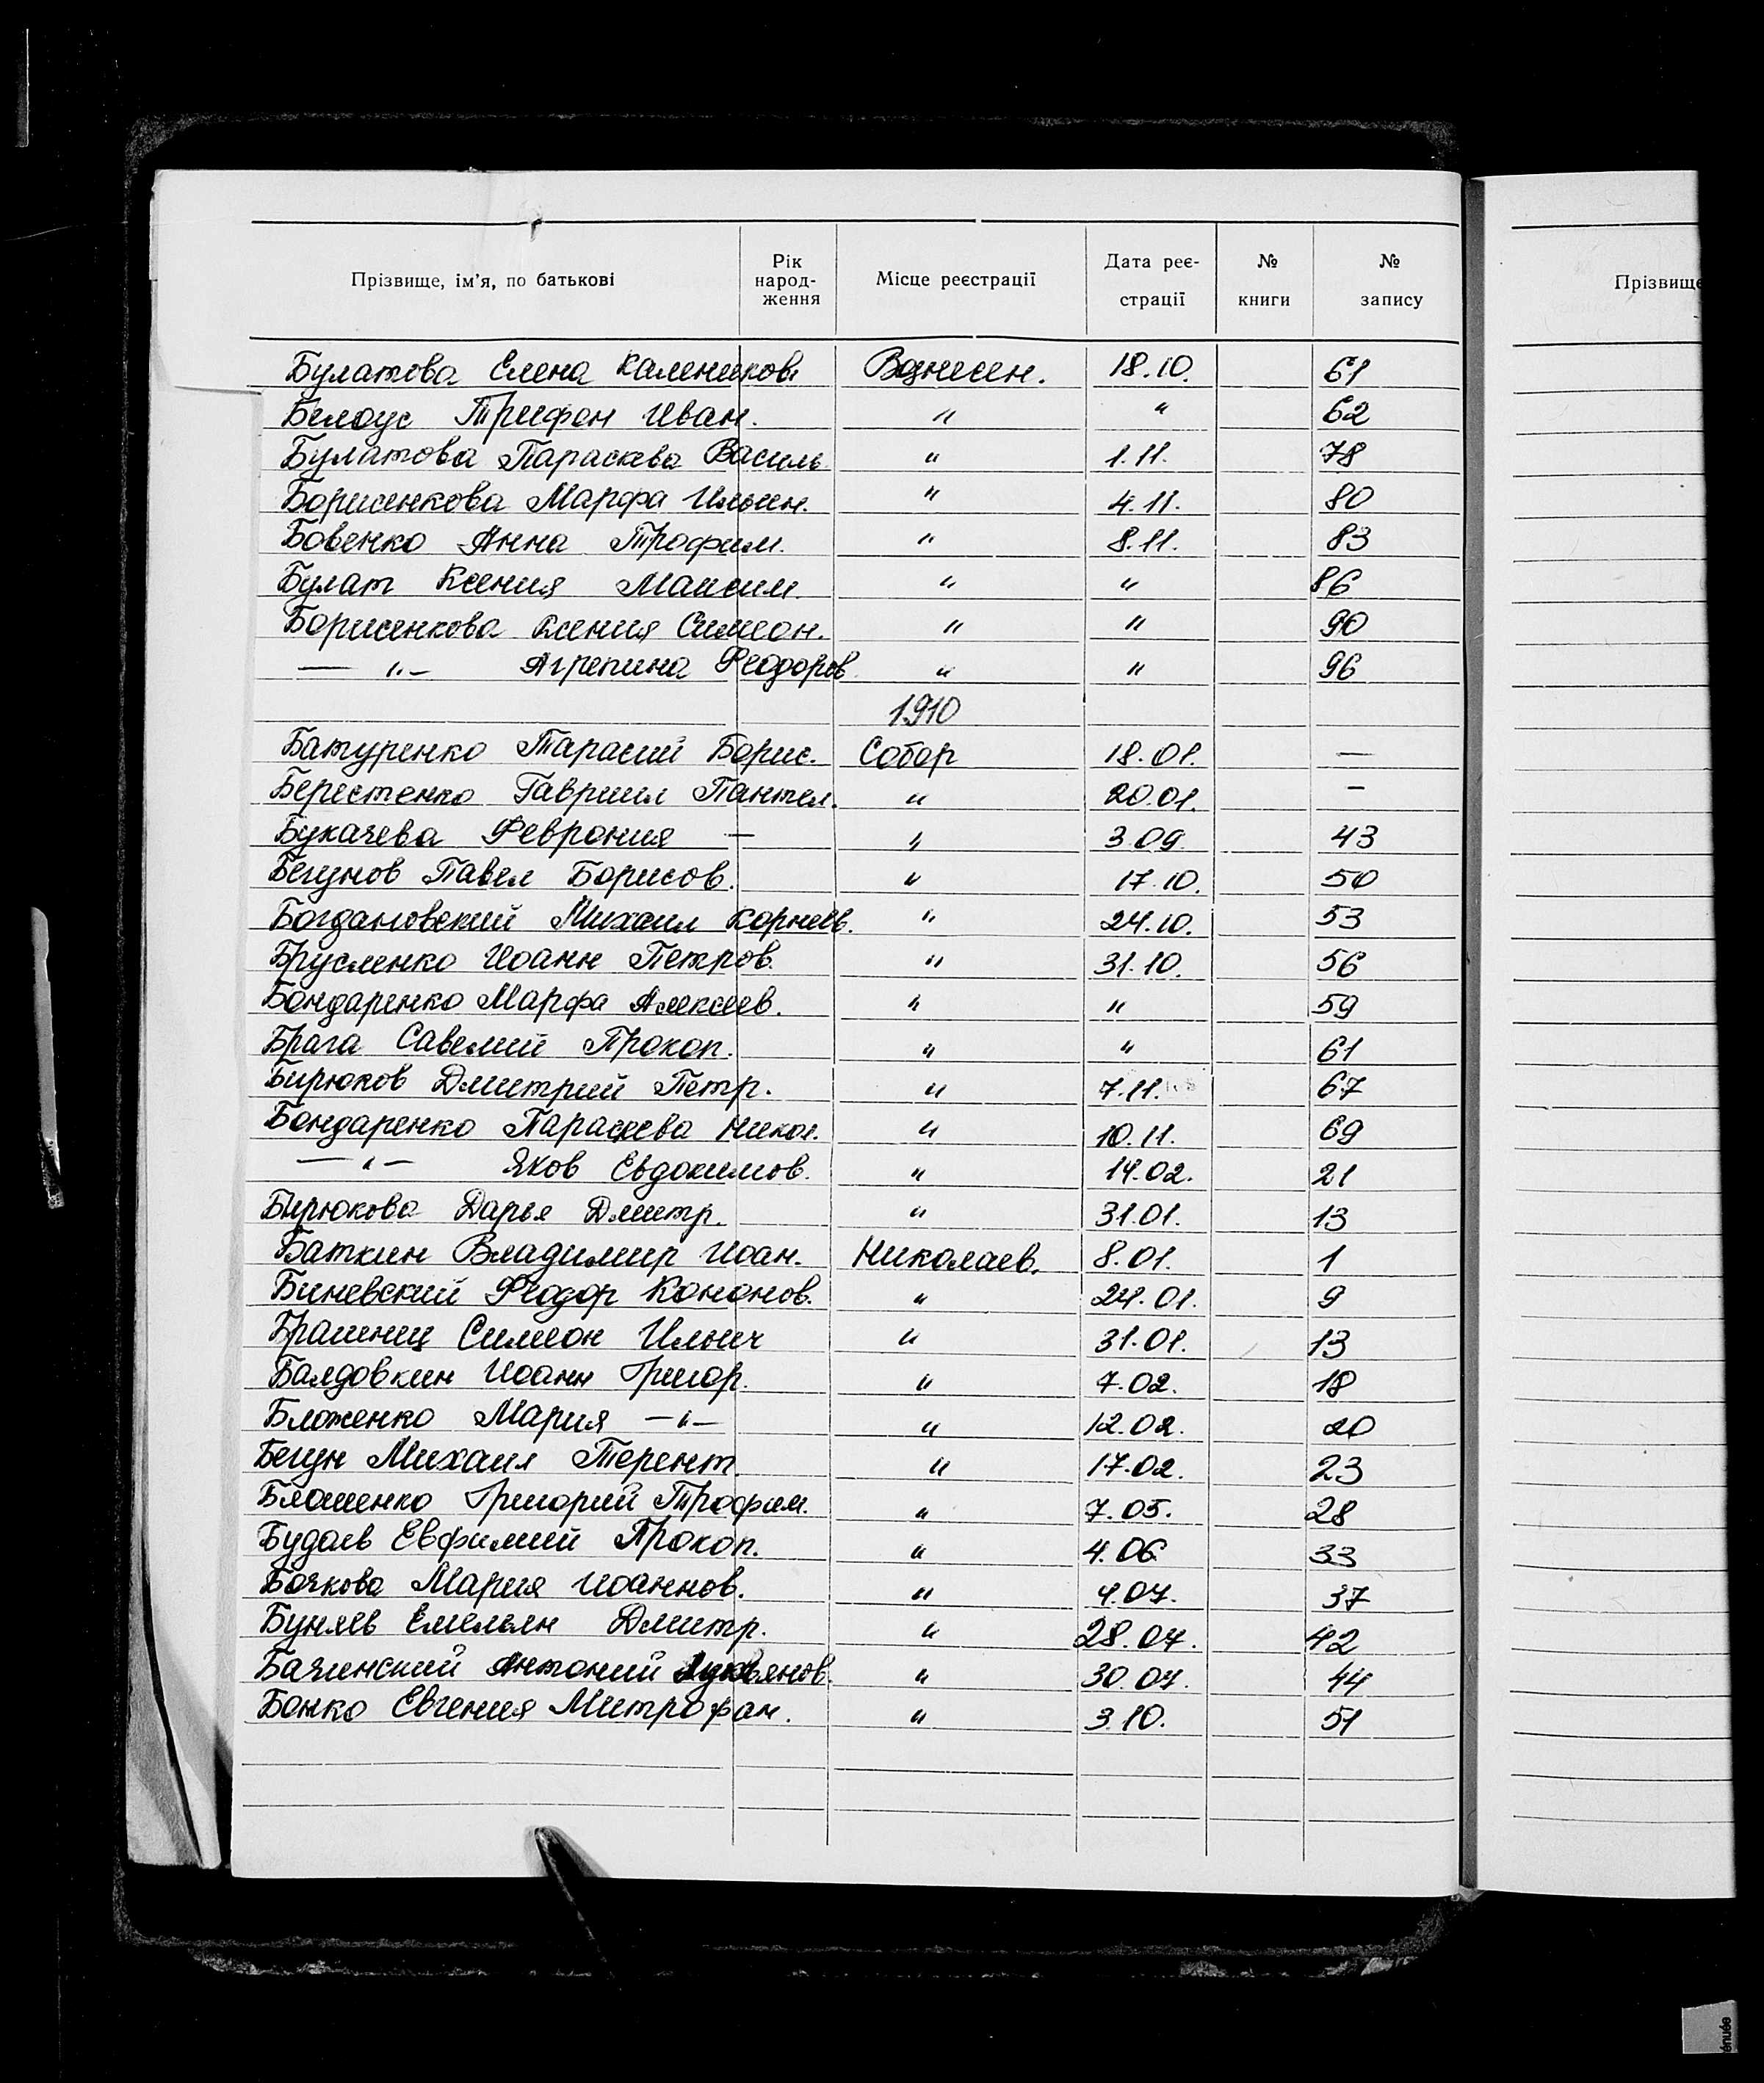 Прізвище, ім’я, по батькові Рік народ-ження Місце реєстрації Дата реє-страції № книги № запису
Прізвище
Булатова Елена Каленников Вознесен. 18.10. 61
Белоус Трифон Иван. " " 62
Булатова Параскева Василь. " 1.11. 78
Борисенкова Марфа Ильин. " 4.11. 80
Бовенко Анна Трофим. " 8.11. 83
Булат Ксения Максим. " " 86
Борисенкова Ксения Симеон. " " 90
— " — Агрепина Феодоров. " " 96
1910
Батуренко Тарасий Борис. Собор 18.01. —
Берестенко Гавриил Пантел. " 20.01. —
Букачева Феврония — " 3.09. 43
Бегунов Павел Борисов. " 17.10. 50
Богдановский Михаил Корнеев. " 24.10. 53
Брусленко Иоанн Петров. " 31.10. 56
Бондаренко Марфа Алексеев. " " 59
Брага Савелий Прокоп. " " 61
Бирюков Дмитрий Петр. " 7.11. 67
Бондаренко Параскева Никол. " 10.11. 69
— " — Яков Евдокимов. " 14.02. 21
Бирюкова Дарья Дмитр. " 31.01. 13
Баткин Владимир Иоан. Николаев. 8.01. 1
Биневский Феодор Кононов. " 24.01. 9
Симеон Ильич " 31.01. 13
Балдовкин Иоанн Григор. " 7.02. 18
Бложенко Мария — " — " 12.02. 20
Бегун Михаил Терент. " 17.02. 23
Григорий Трофим. " 7.05. 28
Будаев Евфимий Прокоп. " 4.06 33
Бочкова Мария Иоаннов. " 4.07. 37
Буняев Емельян Дмитр. " 28.07. 42
Бачинский Антоний Лукьянов. " 30.07. 44
Божко Евгения Митрофан. " 3.10. 51
énuée